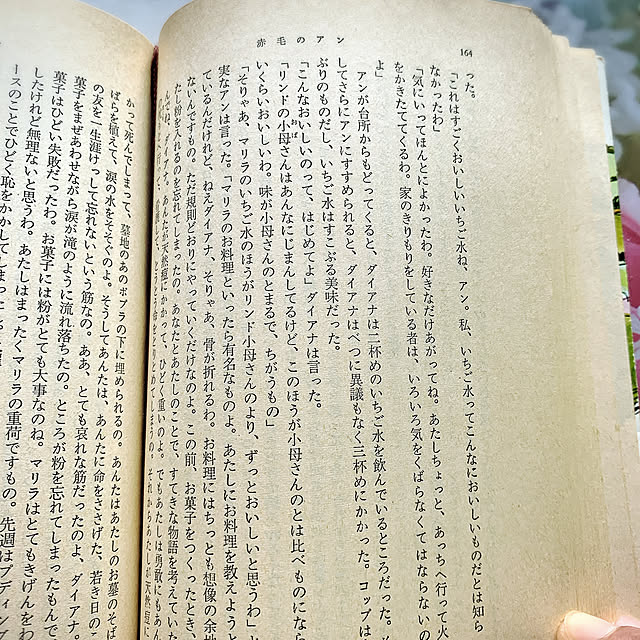 赤毛のアン
164
った。
「これはすごくおいしいいちご水ね、アン。私、いちご水ってこんなにおいしいものだとは知ら
なかったわ」
「気にいってほんとによかったわ。好きなだけあがってね。あたしちょっと、あっちへ行って火
をかきたててくるわ。家のきりもりをしている者は、いろいろ気をくばらなくてはならないの
よ」
アンが台所からもどってくると、ダイアナは二杯めのいちご水を飲んでいるところだった。そ
してさらにアンにすすめられると、ダイアナはべつに異議もなく三杯めにかかった。コップは
ぷりのものだし、いちご水はすこぶる美味だった。
「こんなおいしいのって、はじめてよ」ダイアナは言った。
「リンドの小母さんはあんなにじまんしてるけど、このほうが小母さんのとは比べものになら
いくらいおいしいわ。味が小母さんのとまるで、ちがうもの」
「そりゃあ、マリラのいちご水のほうがリンド小母さんのより、ずっとおいしいと思うわ」と
実なアンは言った。「マリラのお料理といったら有名なものよ。あたしにお料理を教えようと
ているんだけれど、ねえダイアナ、そりゃあ、骨が折れるわ。お料理にはちっとも想像の余地
ないんですもの。ただ規則どおりにやっていくだけなのよ。この前、お菓子をつくったとき、
たし粉を入れるのを忘れてしまったの。あなたとあたしのことで、すてきな物語を考えていた
ね、ダイアナ。あんたが天然痘にかかって、ひどく重いのよ。でもあたしは勇敢にもあん
とりとめてしまうの。それからあたしが天然痘に
かかって死んでしまって、墓地のあのポプラの下に埋められるの。あんたはあたしのお墓のそば
ばらを植えて、涙の水をそそぐのよ。そうしてあんたは、あんたに命をささげた、若き日の
の友を一生涯けっして忘れないという筋なの。ああ、とても哀れな筋だったのよ、ダイアナ。
菓子をまぜあわせながら涙が滝のように流れ落ちたの。ところが粉を忘れてしまったもんで
菓子はひどい失敗だったわ。お菓子には粉がとても大事なのね。マリラはとてもきげんをわ
したけれど無理ないと思うわ。あたしはまったくマリラの重荷ですもの。先週はプディング
ースのことでひどく恥をかかしてしまった